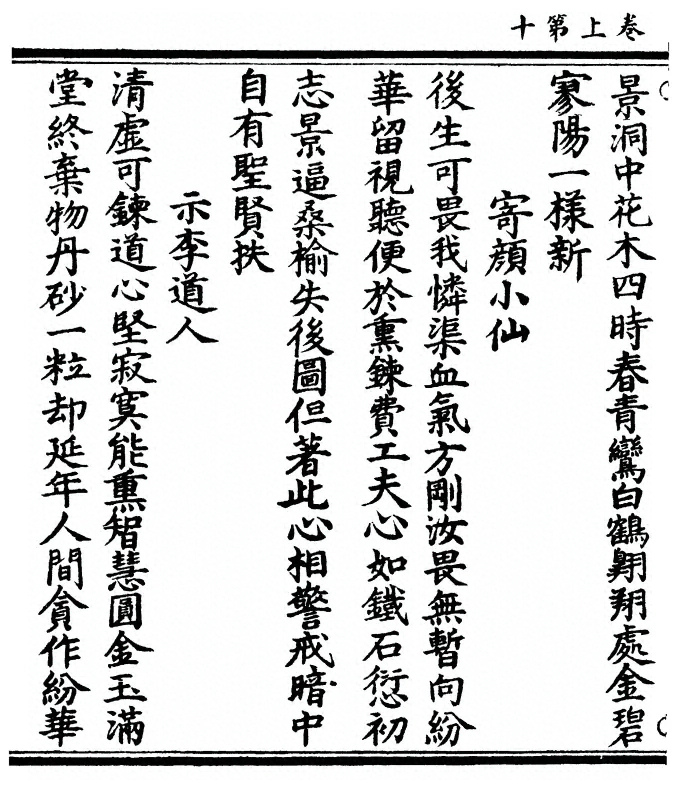 卷上第十
景洞中花木四時春青鸞白鶴翺翔處金碧
寥陽一樣新
寄顏小仙
後生可畏我憐渠血氣方剛汝畏無暫向紛
華留視聽便於熏鍊費工夫心如鐵石愆初
志景逼桑榆失後圖但著此心相警戒暗中
自有聖賢扶
示李道人
清虛可鍊道心堅寂寞能熏智慧圓金玉滿
堂終棄物丹砂一粒却延年人間貪作紛華